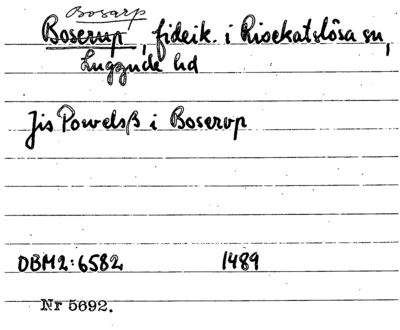 Bosarp
Boserup, fideik. i Risekatslösa sn,
Luggude hd
Jis Powelsß i Boserup
DBM2:6582 1489
Nr 5692.